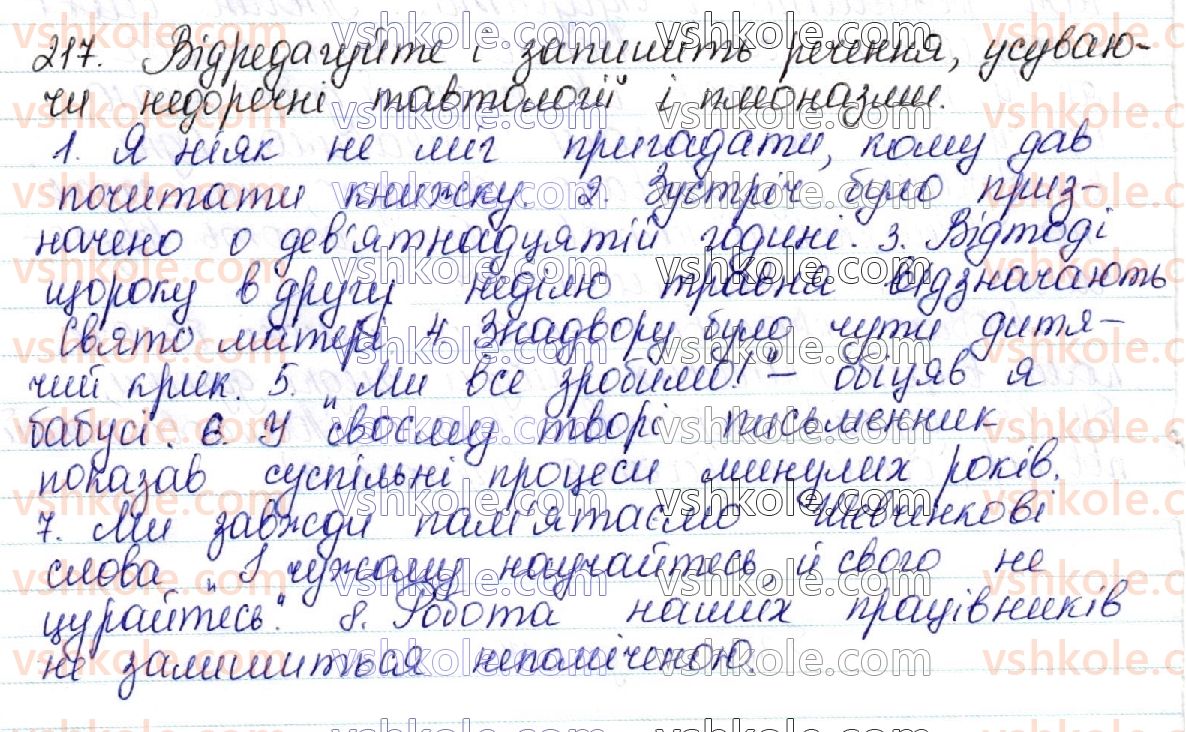 217. Відредагуйте і запишіть речення, усуваю-
чи недоречні тавтології і плеоназми.
1. Я ніяк не міг пригадати, кому дав
почитати книжку. 2. Зустріч було приз-
начено о дев'ятнадцятій годині. 3. Відтоді
щороку в другу неділю травня відзначають
Свято матері. 4. Знадвору було чути дитя-
чий крик. 5. „Ми все зробимо!" – обіцяв я
бабусі. 6. У своєму творі письменник
показав суспільні процеси минулих років.
7. Ми завжди пам'ятаємо Шевченкові
слова „І чужому научайтесь, й свого не
цурайтесь". 8. Робота наших працівників
не залишиться непоміченою.